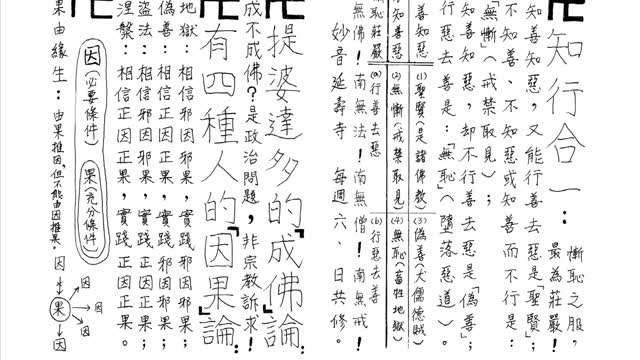 卍知行合一:
慚恥之服,
最為莊嚴!
知善知惡,又能行善去惡是「聖賢」;
不知善、不知惡或知善而不行是:
「無慚」(戒禁取見);
知善知惡,却不行善去惡是「偽善」;
行惡去善是:「無恥」(墮落惡道)。
知善知惡 (1)聖賢(是諸佛教) (3)偽善(大儒德賊)
知善惡 (2)無慚(戒禁取見) (4)無恥(畜牲地獄)
慚恥莊嚴 (a)行善去惡 (b)行惡去善
無佛!南無法!南無僧!南無戒!
妙音延壽寺 每週六、日共修。
卍提婆達多的「成佛論」:
成不成佛?是政治問題,非宗教訴求!
卍有四種人的「因果」論:
地獄:相信邪因邪果,實踐邪因邪果;
偽善:相信正因正果,實踐邪因邪果;
盜法:相信正因邪果,實踐正因邪果;
涅槃:相信正因正果,實踐正因正果。
因(必要條件) 果(充分條件)
果由緣生:由果推因,但不能由因推果。
因
果
因
因
因
因